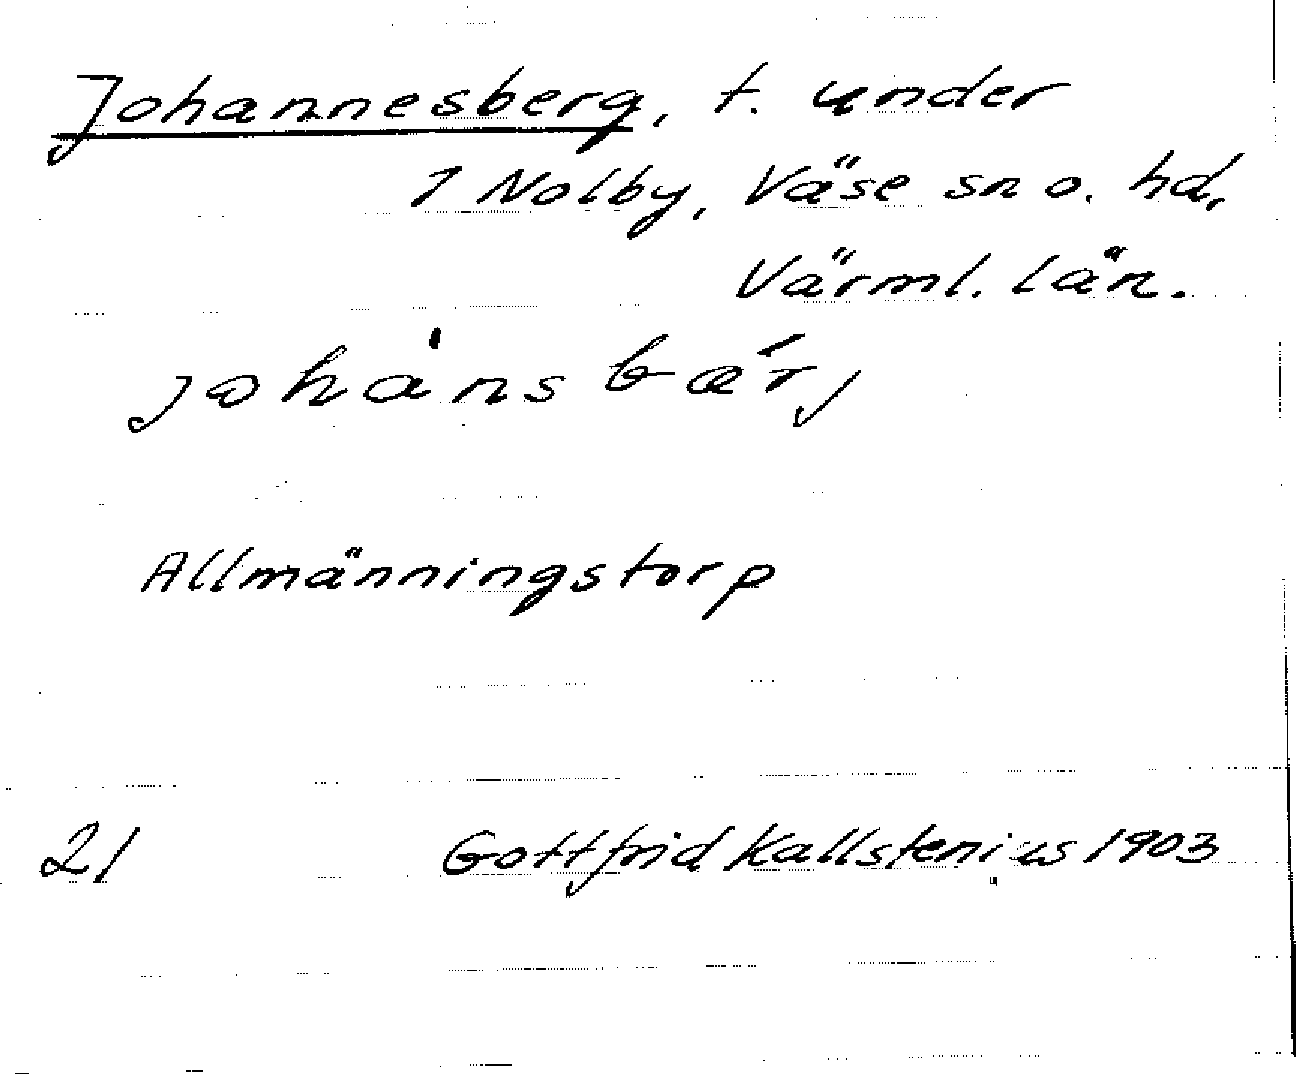 Johannesberg, t. under
1 Nolby, Väse sn o. hd,
Värml. län.
johánsbæ̀rj
Allmänningstorp
21 Gottfrid Kallstenius 1903